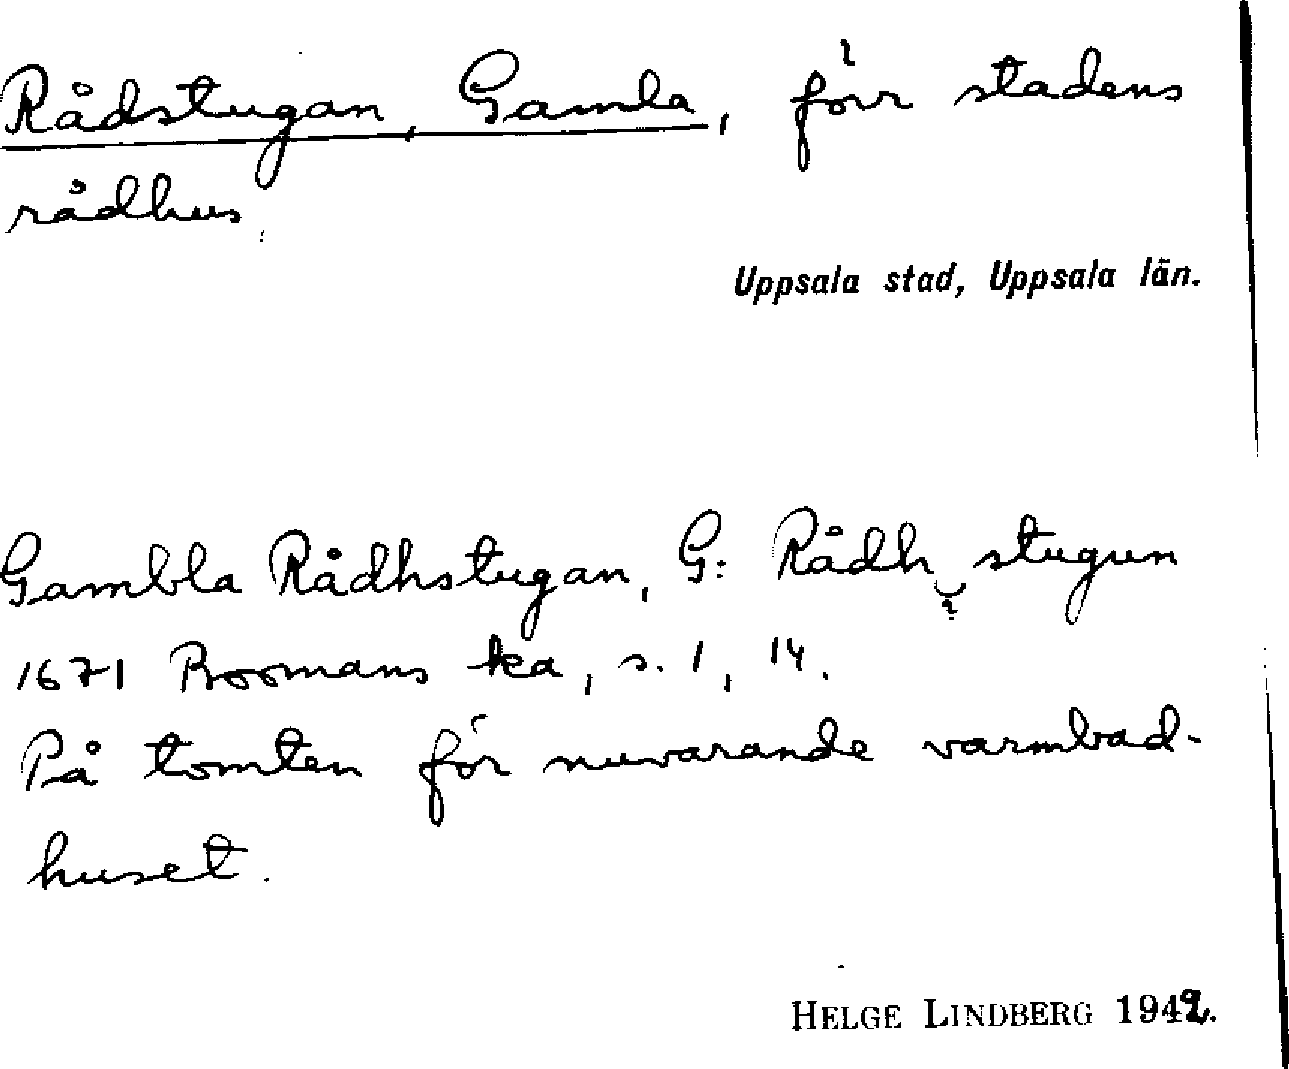 Rådstugan, Gamla, förr stadens
rådhus.
Uppsala stad, Uppsala län.
Gambla Rådhstugan, G: Rådh stugun
1671 Roomans ka, s. 1, 14.
På tomten för nuvarande varmbad-
huset.
HELGE LINDBERG 1942.